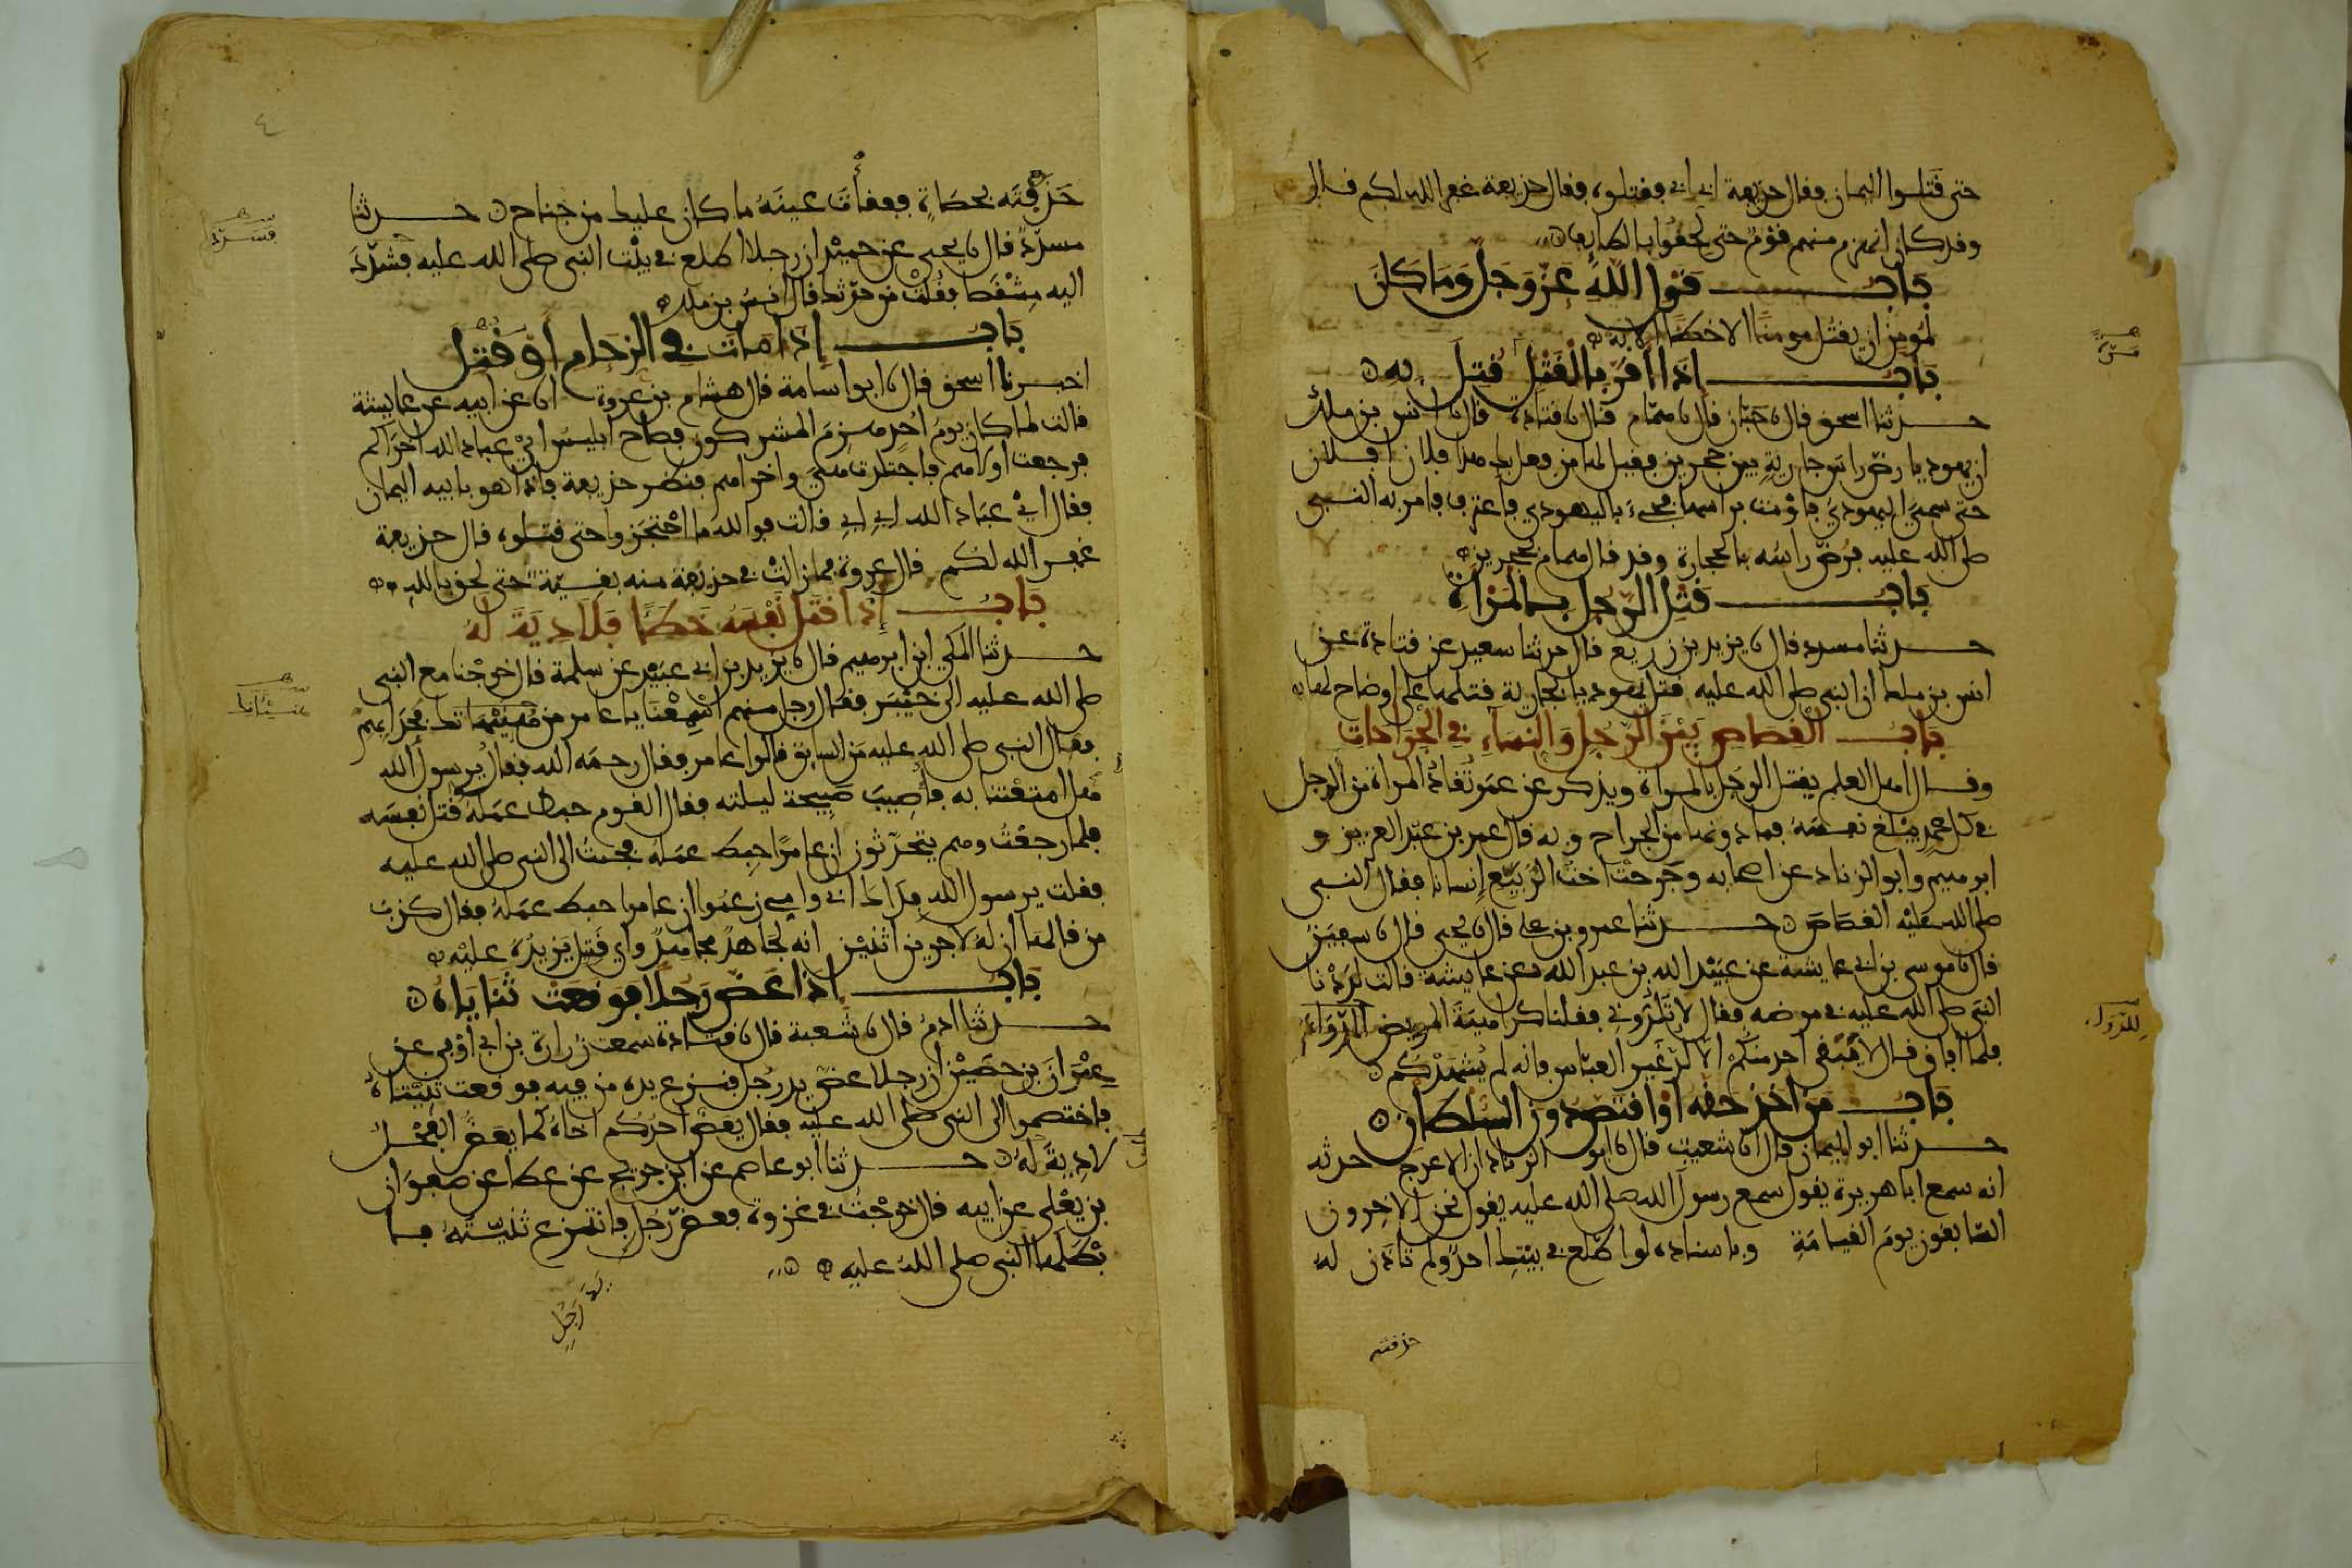 حتى قتلوا اليمان فقال حذيفة ابي ابي فقتلوه فقال حذيفة غفر الله لكم قال
وقد كان انهزم منهم قوم حتى لحقوا بالطايف
باب قول الله عز وجل وما كان
لمومن ان يقتل مومنا الا خطئا الاية
باب إذا أقر بالقتل قتل به
حدثنا اسحق قال نا حبان قال نا همام قال نا قتادة قال نا انس بن ملك
ان يهوديا رض راس جارية بين حجرين فقيل لها من فعل بك هذا افلان افلان
حتى سمي اليهودي فاومت براسها فجيء باليهودي فاعترف فامر به النبي
صلى الله عليه فرض راسه بالحجارة وقد قال همام بحجرين
باب قتل الرجل بالمرأة
حدثنا مسدد قال نا يزيد بن زريع قال حدثنا سعيد عن قتادة عن
انس بن ملك ان النبي صلى الله عليه قتل يهوديا بجارية قتلها على اوضاح لها
باب القصاص بين الرجل والنساء في الجراحات
وقال اهل العلم يقتل الرجل بالمراة ويذكر عن عمر تقاد المراة من الرجل
في كل عمد يبلغ نفسه فما دونها من الجراح وبه قال عمر بن عبد العزيز و
ابرهيم وابو الزناد عن اصحابه وجرحت اخت الربيع إنسانا فقال النبي
صلى الله عليه القصاص حدثنا عمرو بن علي قال نا يحيى قال نا سفين
قال نا موسى بن ابي عايشة عن عبيد الله بن عبد الله عن عايشة قالت لددنا
النبي صلى الله عليه في مرضه فقال لا تلدوني فقلنا كراهية المريض الدواء
فلما افاق قال لا يبقى احد منكم الا لد غير العباس فانه لم يشهدكم
باب من أخذ حقه أو اقتص دون السلطان
حدثنا ابو اليمان قال انا شعيب قال نا ابو الزناد ان الاعرج حدثه
انه سمع ابا هريرة يقول سمع رسول الله صلى الله عليه يقول نحن الاخرون
السابقون يوم القيامة وباسناده لو اطلع في بيتك احد ولم تاذن له
للدواء
حذفته
٤
حذفته بحصاة ففقأت عينه ما كان عليك من جناح حدثنا
مسدد قال نا يحيى عن حميد ان رجلا اطلع في بيت النبي صلى الله عليه فسدد
اليه مشقصا فقلت من حدثك قال انس بن ملك
باب إذا مات في الزحام أو قتل
اخبرنا اسحق قال نا ابو اسامة قال هشام بن عروة انا عن ابيه عن عايشة
قالت لما كان يوم احد هزم المشركون فصاح ابليس اي عباد الله اخراكم
فرجعت اولاهم فاجتلدت هي واخراهم فنظر حذيفة فاذا هو بابيه اليمان
فقال اي عباد الله ابي ابي قالت فوالله ما احتجزوا حتى قتلوه قال حذيفة
غفر الله لكم قال عروة فما زالت في حذيفة منه بقية حتى لحق بالله
باب إذا قتل نفسه خطئا فلا دية له
حدثنا المكي ابن ابرهيم قال نا يزيد بن ابي عبيد عن سلمة قال خرجنا مع النبي
صلى الله عليه الى خيبر فقال رجل منهم اسمعنا يا عامر من هنيهاتك فحدا بهم
فقال النبي صلى الله عليه من السايق قالوا عامر فقال رحمه الله فقال يرسول الله
هلا امتعتنا به فأصيب صبيحة ليلته فقال القوم حبط عمله قتل نفسه
فلما رجعت وهم يتحدثون ان عامرا حبط عمله فجئت الى النبي صلى الله عليه
فقلت يرسول الله فداك ابي وامي زعموا ان عامرا حبط عمله فقال كذب
من قالها ان له لاجرين اثنين انه لجاهد مجاهد واي قتل يزيده عليه
باب اذا عض رجلا فوقعت ثناياه
حدثنا ادم قال نا شعبة قال نا قتادة سمعت زرارة بن ابي اوفى عن
عمران بن حصين ان رجلا عض يد رجل فنزع يده من فيه فوقعت ثنيتاه
فاختصموا الى النبي صلى الله عليه فقال يعض احدكم اخاه كما يعض الفحل
لا دية له حدثنا ابو عاصم عن ابن جريج عن عطا عن صفوان
بن يعلى عن ابيه قال خرجت في غزوة فعض رجل فانتزع ثنيته فا
بطلها النبي صلى الله عليه
رجل